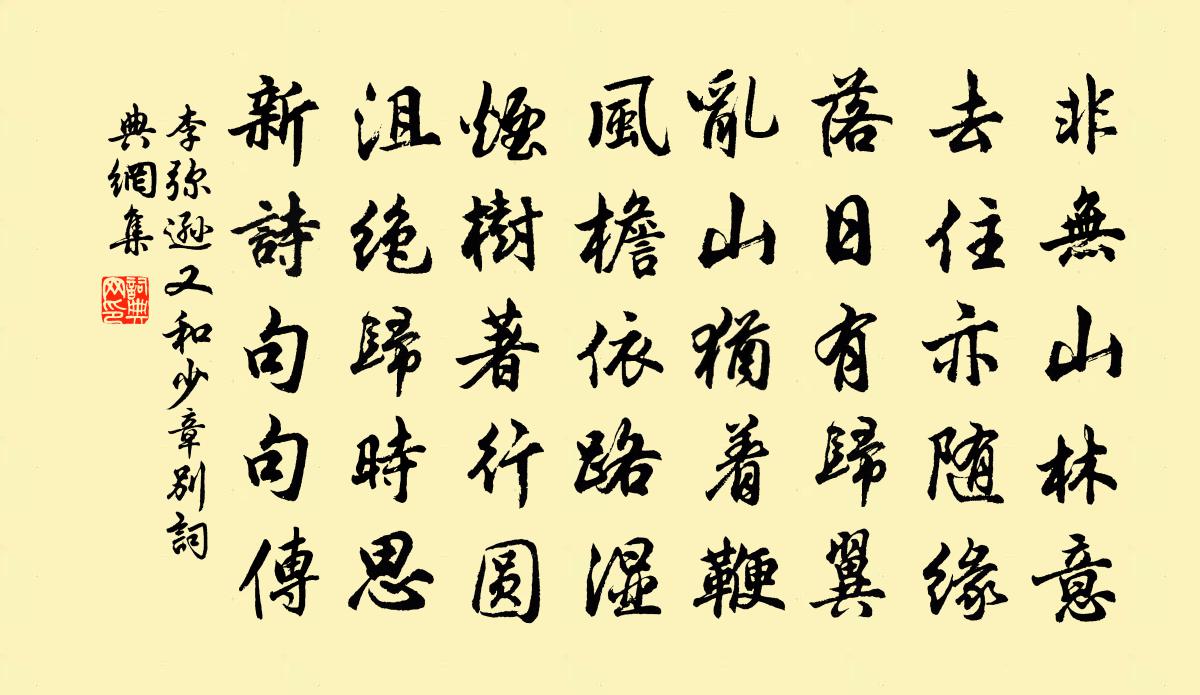 非無山林意
去住亦随緣
落日有歸翼
亂山猶着鞭
風檐依路湿
煙樹著行圆
沮絶歸時思
新詩句句傳
李弥遜又和少章别詞
典網集
詞典
网印